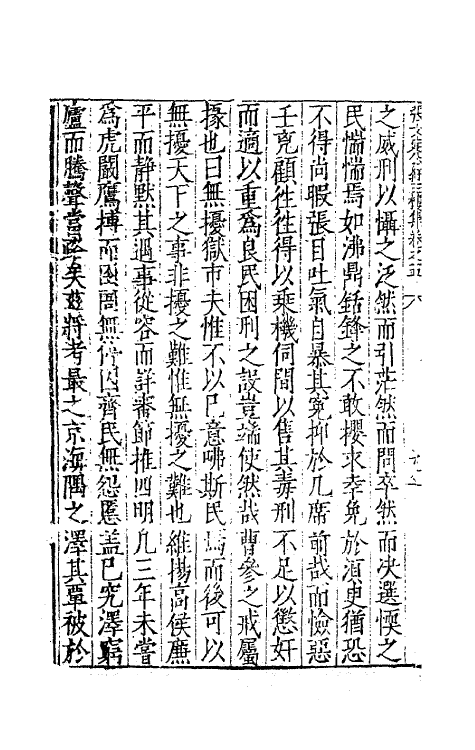 之威刑以懾之泛然而引茫然而問卒然而决選愞之
民惴惴焉如沸鼎銛鋒之不敢櫻求幸免於湏史猶恐
不得尚暇張目吐氣自暴其寃抑於几席前哉而憸惡
壬兇顧徃徃得以乘機伺間以售其毒刑不足以懲奸
而適以重爲良民困刑之設豈端使然哉曹參之戒屬
掾也曰無擾獄市夫惟不以已意咈斯民焉而後可以
無擾天下之事非擾之難惟無擾之難也維揚高侯廉
平而静默其遇事從容而詳審節推四明几三年未嘗
爲虎闞鷹搏而囹圄無滯囚齊民無怨慝蓋已究澤窮
廬而騰聲當寧矣兹將考最之京海隅之澤其覃被於